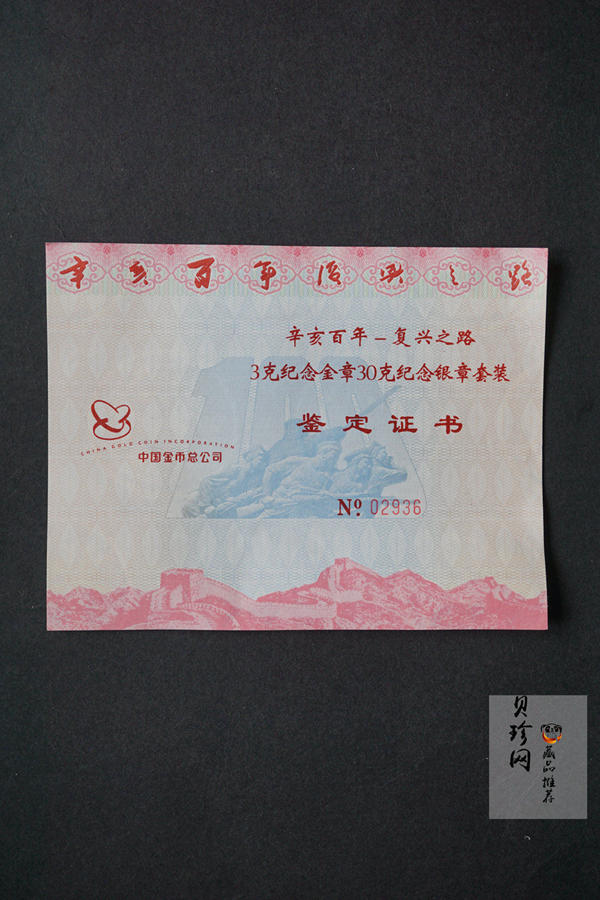 辛亥百年复兴之路
辛亥百年－复兴之路
3克纪念金章30克纪念银章套装
鉴定证书
CHINA GOLD COIN INCORPORATION
中国金币总公司
Nº 02936
100
贝珍网
藏品推荐